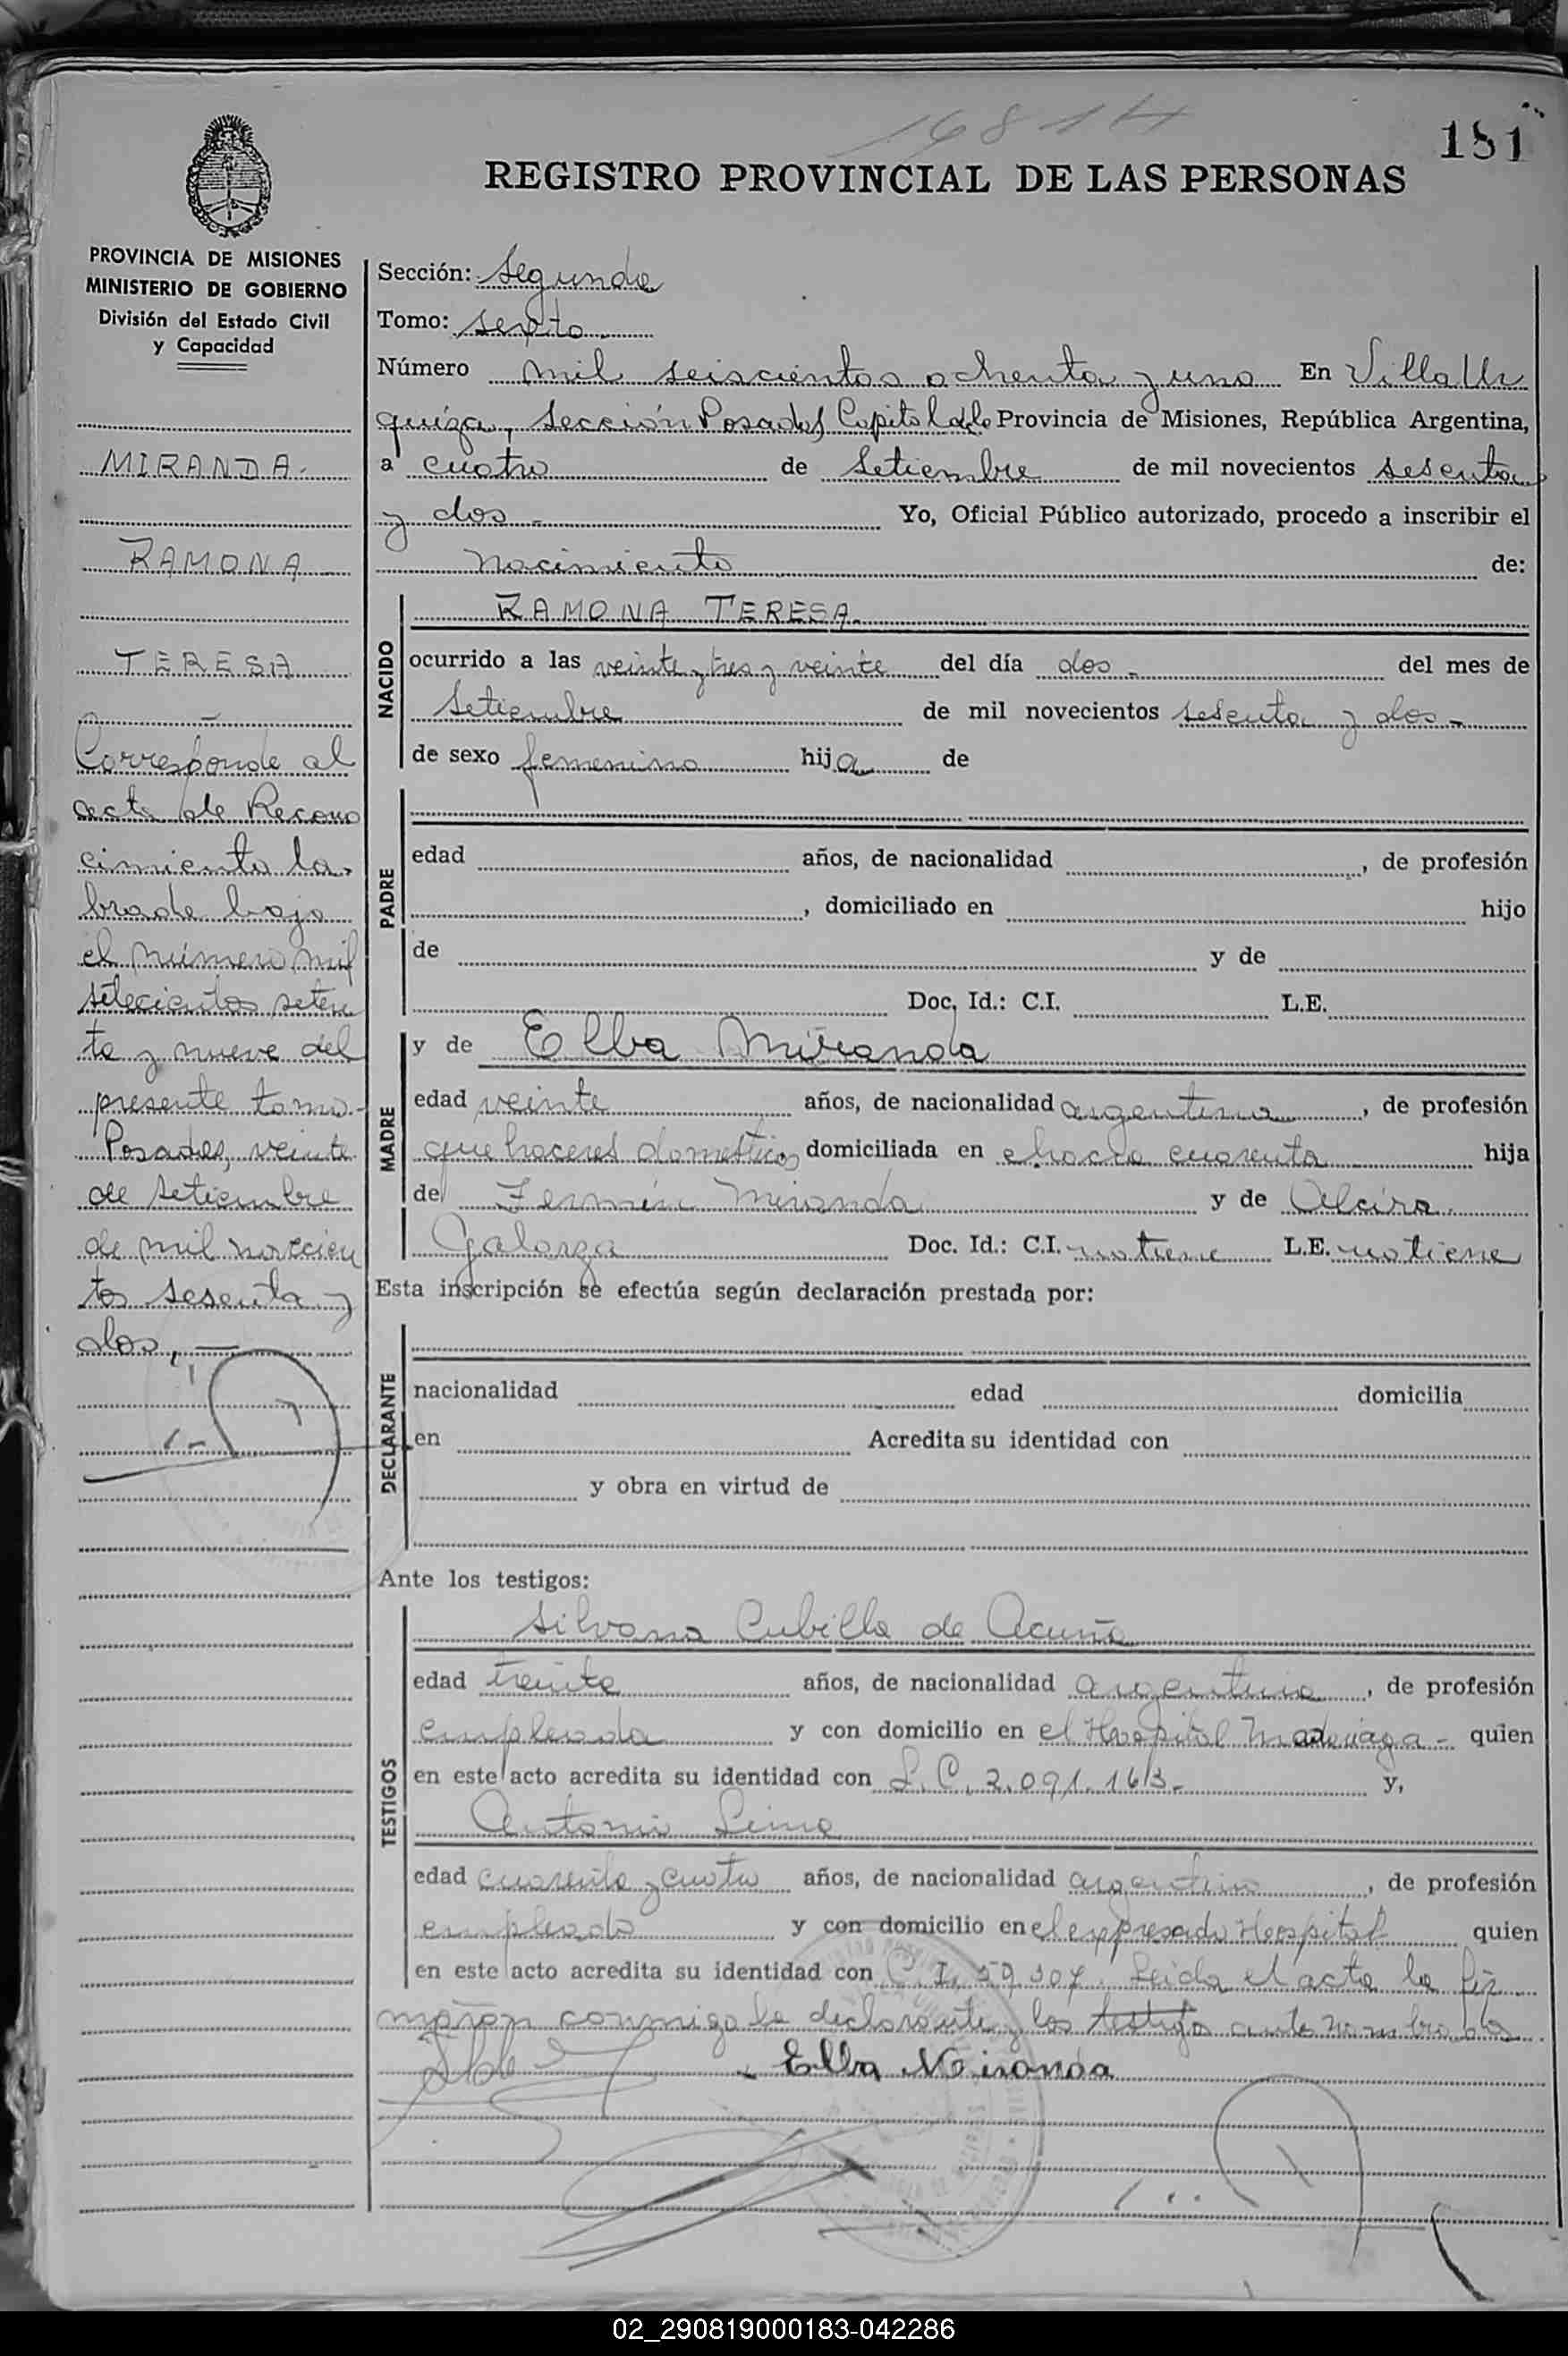 16814
181
REGISTRO PROVINCIAL DE LAS PERSONAS
PROVINCIA DE MISIONES
MINISTERIO DE GOBIERNO
División del Estado Civil
y Capacidad
MIRANDA.
RAMONA
TERESA
Corresponde al
acta de Recono
cimiento la-
brada bajo
el número mil
setecientos seten
ta y nueve del
presente tomo.-
Posadas, veinte
de setiembre
de mil novecien
tos sesenta y
dos.-
Sección: segunda
Tomo: sexto
Número mil seiscientos ochenta y uno En Villa Ur
quiza, Sección Posadas, Capital de la Provincia de Misiones, República Argentina,
a cuatro de Setiembre de mil novecientos sesenta
y dos - Yo, Oficial Público autorizado, procedo a inscribir el
nacimiento de:
NACIDO
RAMONA TERESA.
ocurrido a las veinte y tres y veinte del día dos - del mes de
Setiembre de mil novecientos sesenta y dos -
de sexo femenino hija de
PADRE
edad años, de nacionalidad , de profesión
, domiciliado en hijo
de y de
Doc. Id.: C.I. L.E.
MADRE
y de Elba Miranda
edad veinte años, de nacionalidad argentina , de profesión
quehaceres domesticos domiciliada en chacra cuarenta hija
de Fermín Miranda y de Alcira
Galarza Doc. Id.: C.I. no tiene L.E. no tiene
Esta inscripción se efectúa según declaración prestada por:
DECLARANTE
nacionalidad edad domicilia
en Acredita su identidad con
y obra en virtud de
Ante los testigos:
TESTIGOS
Silvana Cubilla de Acuña
edad treinta años, de nacionalidad argentina , de profesión
empleada y con domicilio en el Hospital Madariaga - quien
en este acto acredita su identidad con L.C. 2.091.163- y,
Antonio Lima
edad cuarenta y cuatro años, de nacionalidad argentino , de profesión
empleado y con domicilio en el expresado Hospital quien
en este acto acredita su identidad con C.I. 59.307. Leida el acta la fir
maron conmigo la declarante y los testigos antes nombrados
Elba Miranda
02_290819000183-042286